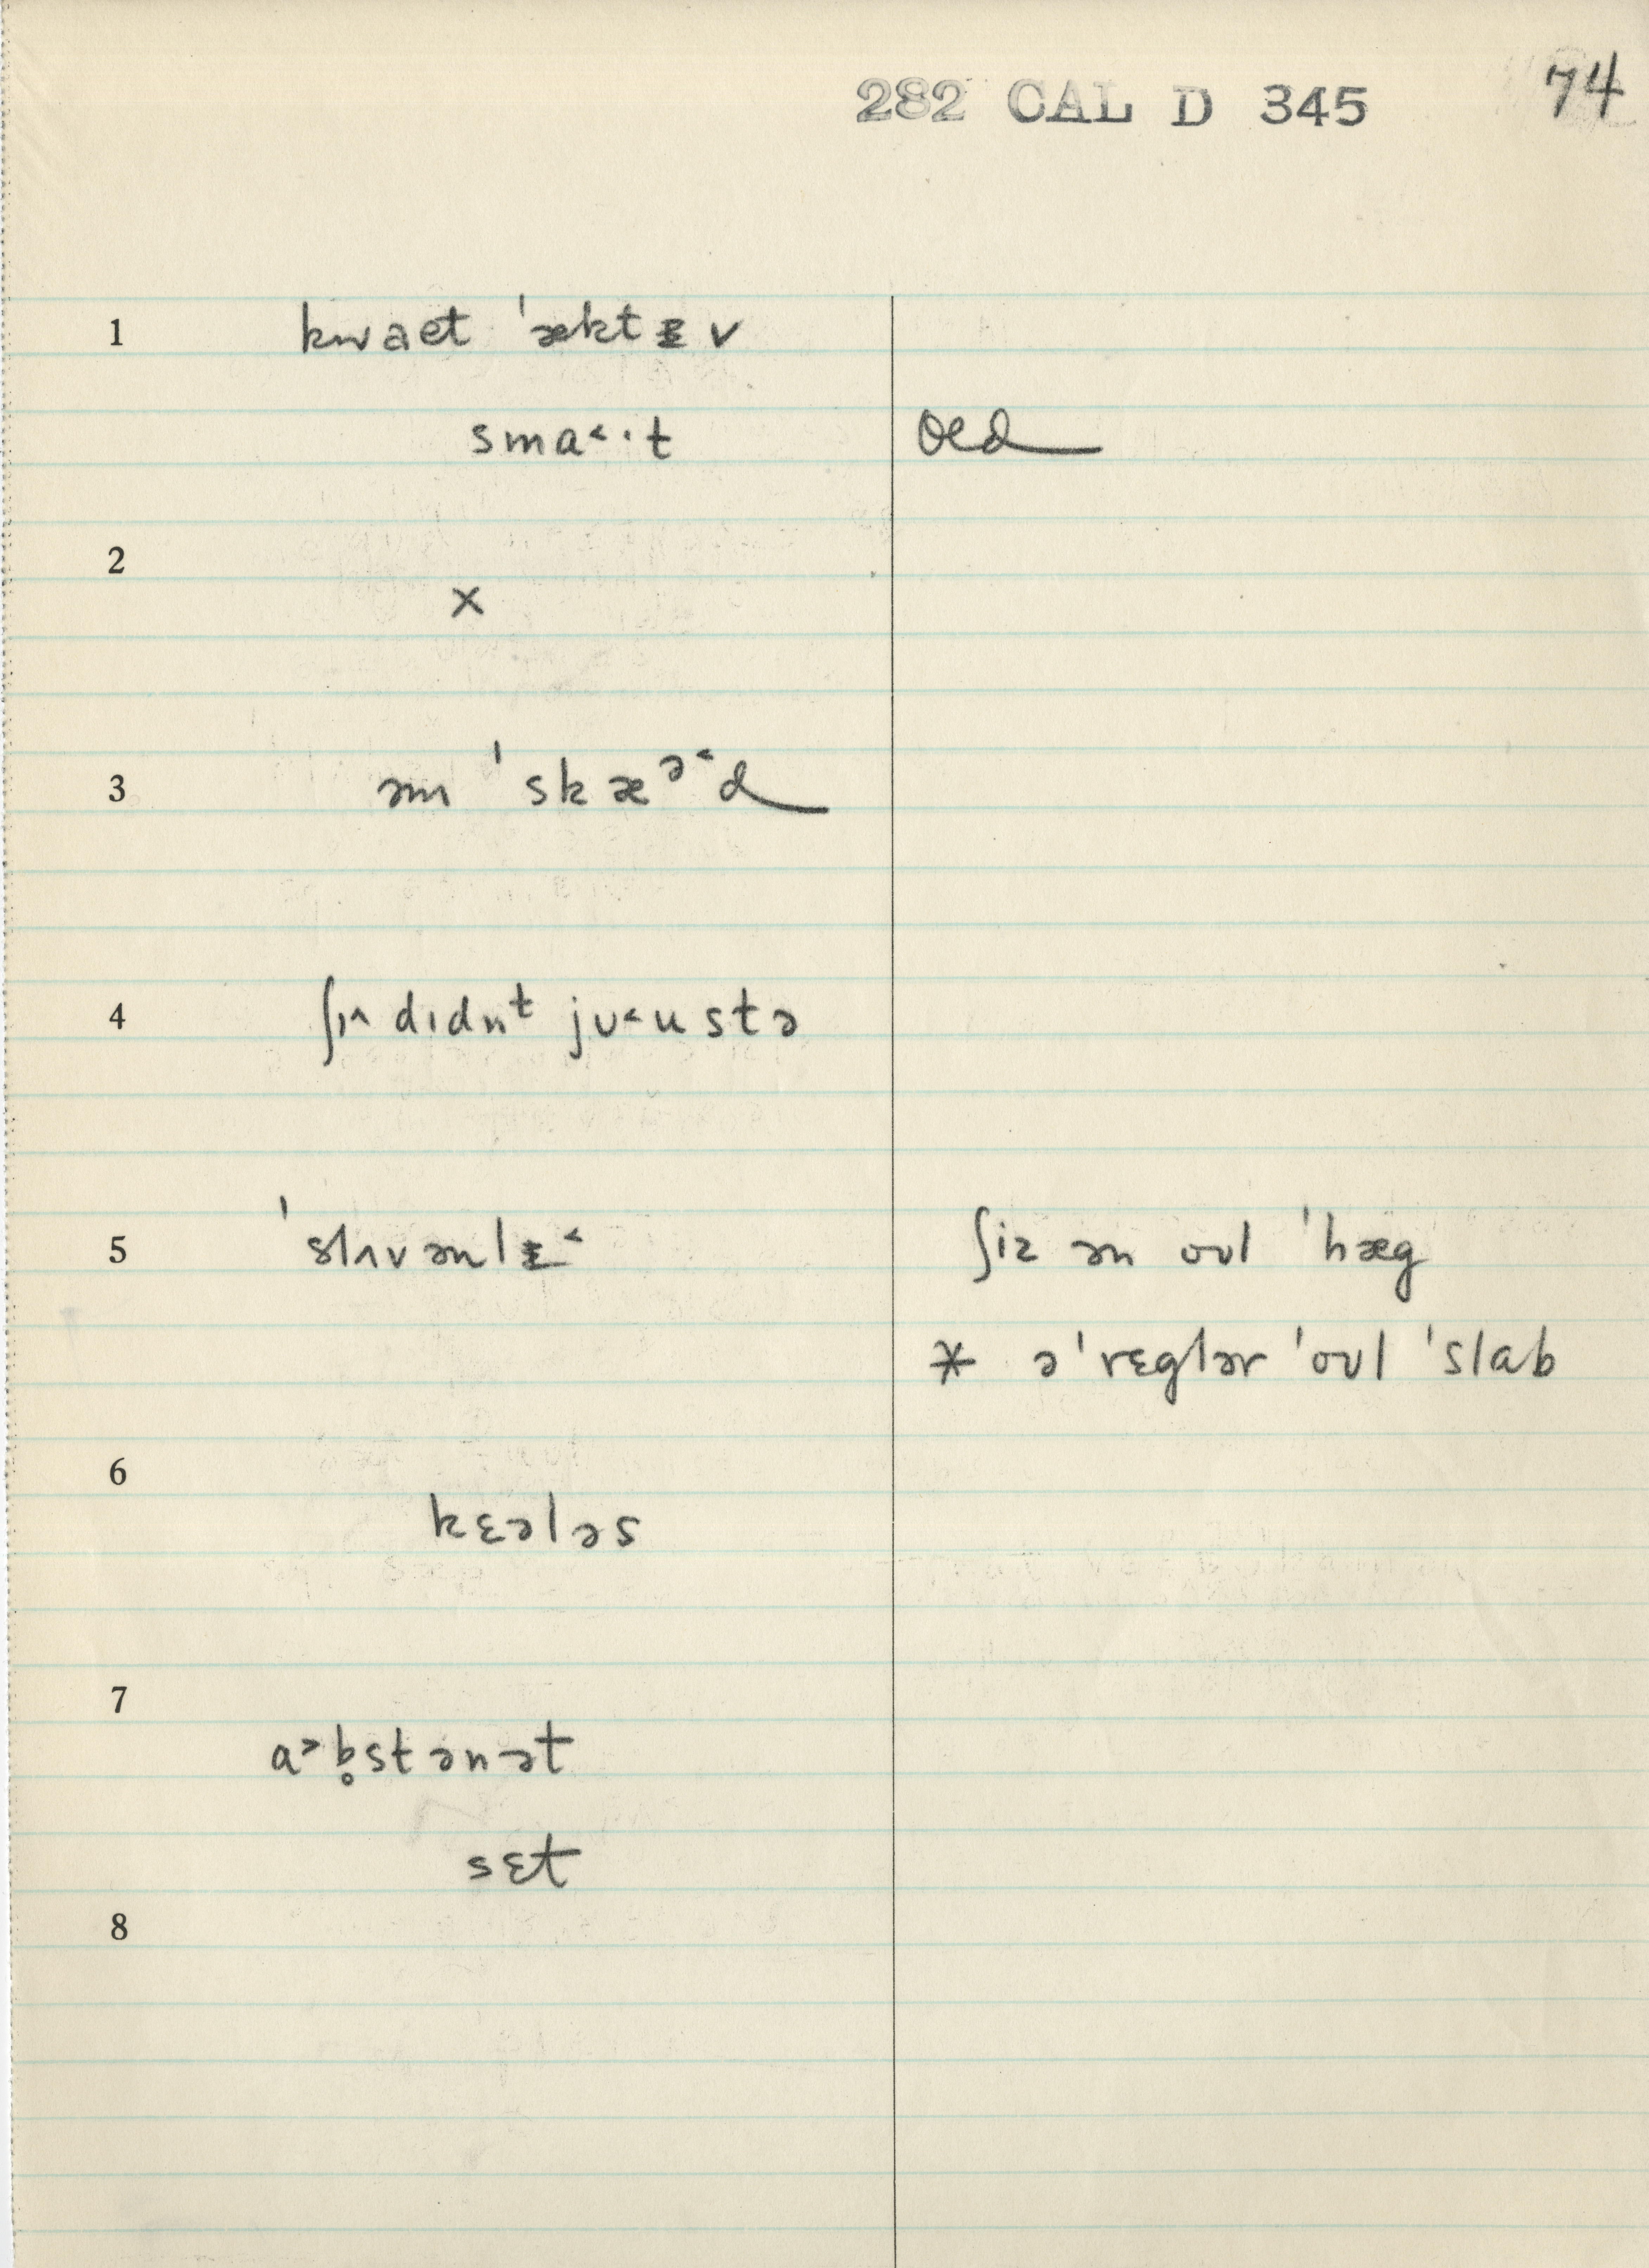 282 CAL D 345 74
1 kwaet ˈæktᵻv
smaˑ˂t old
2
x
3 ən ˈskæᵊ˂d
4 ʃɪ^ dɪdnᵗ jʊ˂ustə
5 ˈslʌvənlᵻ˂ ʃiz ən oʊl ˈhæg
* ə ˈrɛglər ˈoʊl ˈslab
6
kɛələs
7
a˃b̥stənət
sɛt
8